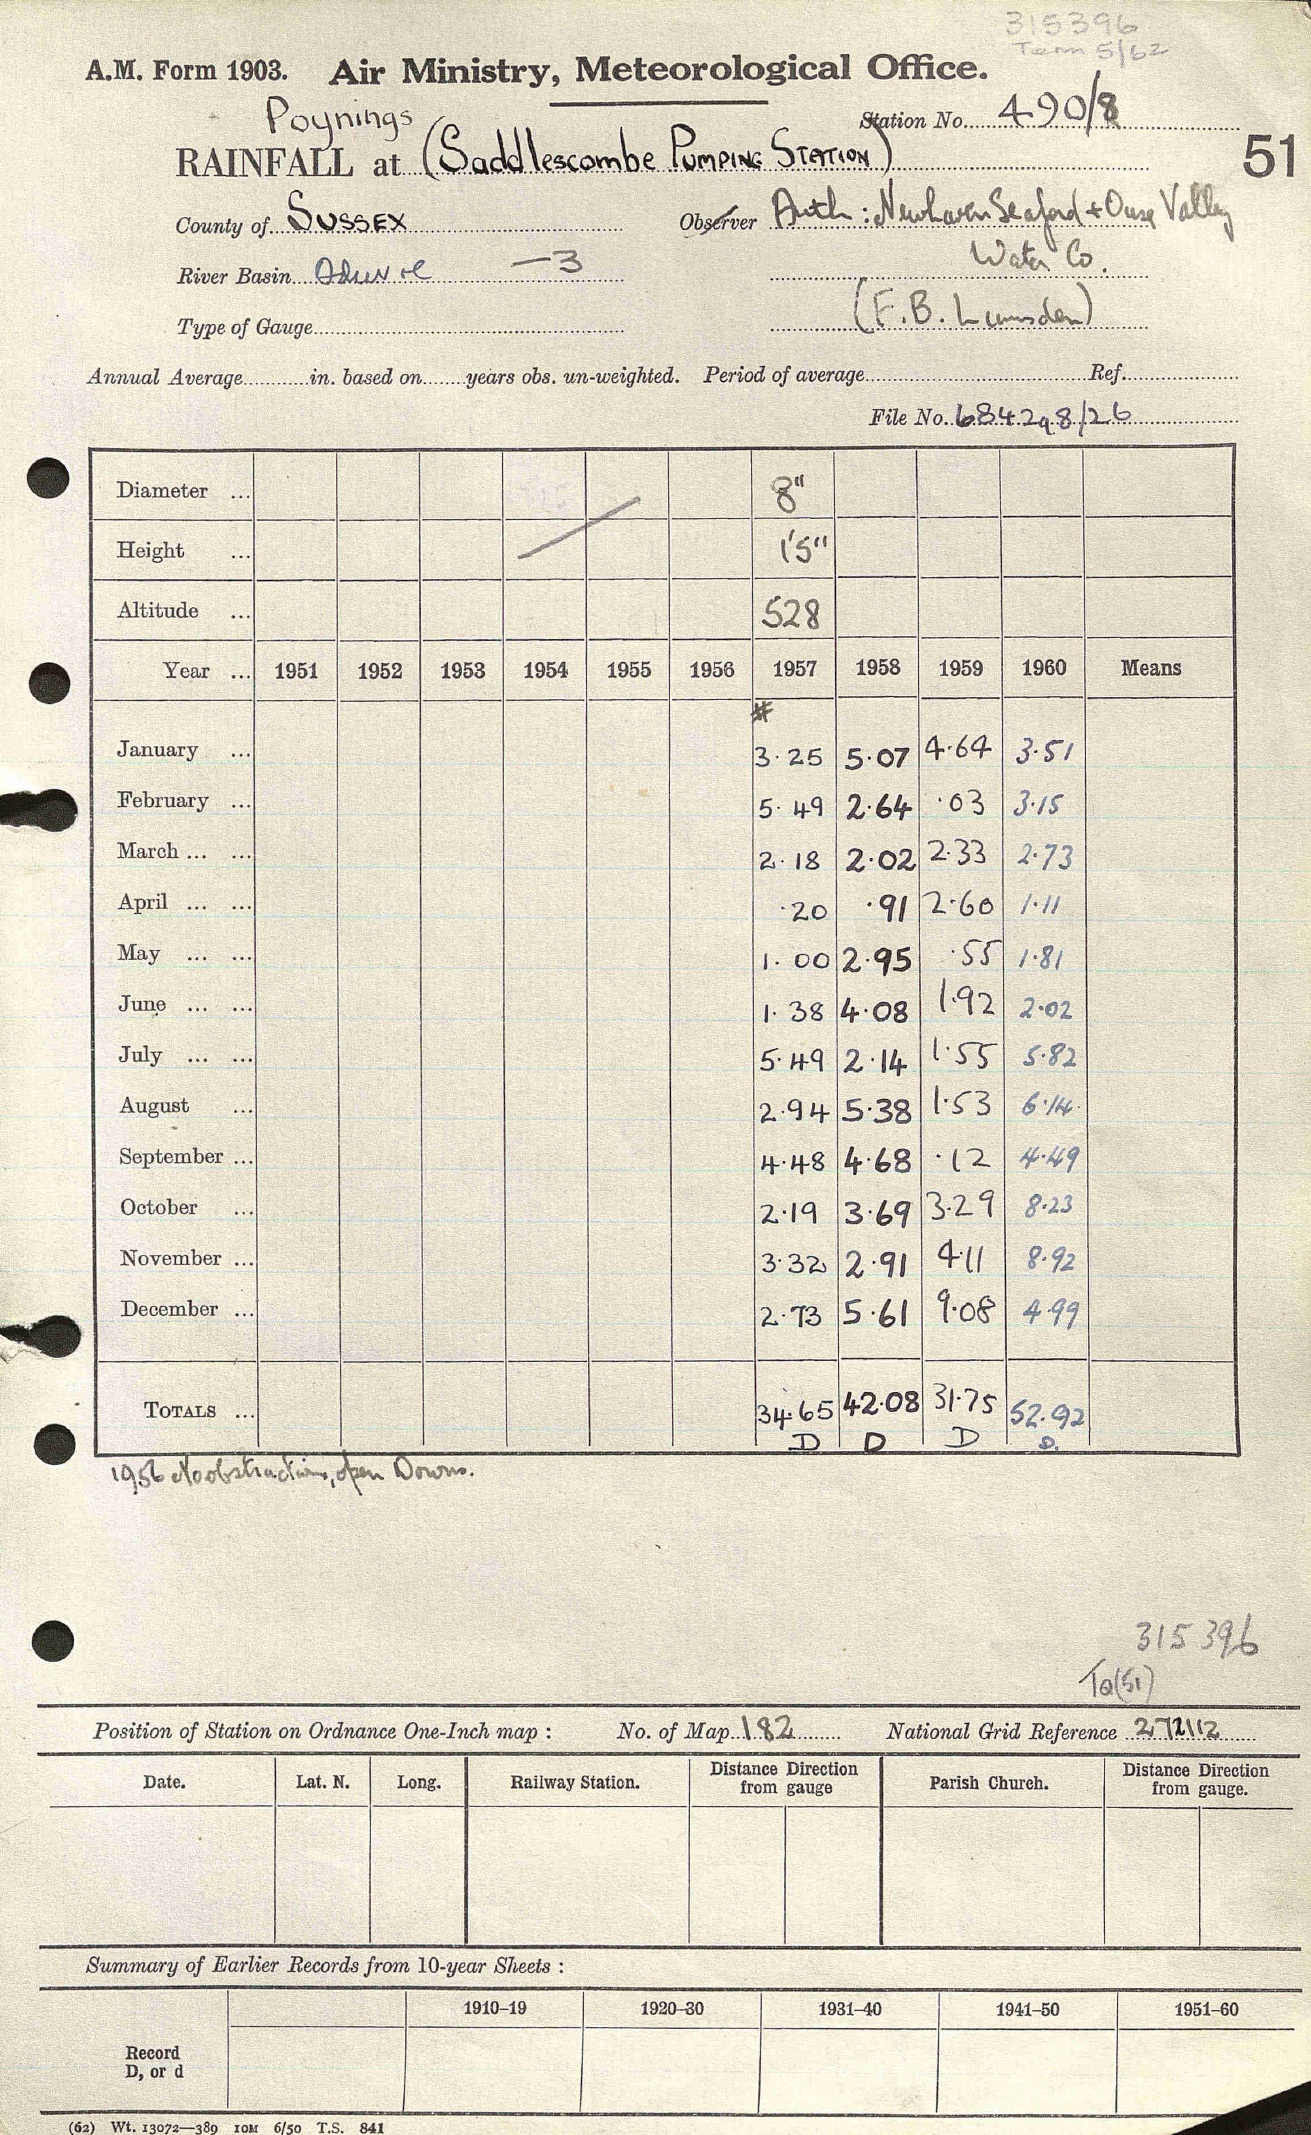 315396
Term 5/62
A.M. Form 1903. Air Ministry, Meteorological Office.
Poynings
Station No. 490/8
RAINFALL at (Saddlescombe Pumping Station)
51
County of Sussex
Observer Auth: Newhaven Seaford + Ouse Valley
Water Co.
River Basin -3
(F.B. Lumsden)
Type of Gauge
Annual Average in. based on years obs. un-weighted. Period of average Ref.
File No. 684298/26
Diameter ... 8"
Height ... 1'5"
Altitude ... 528
Year ... 1951 1952 1953 1954 1955 1956 1957 1958 1959 1960 Means
#
January ... 3.25 5.07 4.64 3.51
February ... 5.49 2.64 .03 3.15
March ... ... 2.18 2.02 2.33 2.73
April ... ... .20 .91 2.60 1.11
May ... ... 1.00 2.95 .55 1.81
June ... ... 1.38 4.08 1.92 2.02
July ... ... 5.49 2.14 1.55 5.82
August ... 2.94 5.38 1.53 6.14
September ... 4.48 4.68 .12 4.49
October ... 2.19 3.69 3.29 8.23
November ... 3.32 2.91 4.11 8.92
December ... 2.73 5.61 9.08 4.99
Totals ... 34.65 42.08 31.75 52.92
D D D D.
1956 No obstructions, open Downs.
315396
TQ(51)
Position of Station on Ordnance One-Inch map : No. of Map 182 National Grid Reference 272112
Date. Lat. N. Long. Railway Station. Distance Direction from gauge Parish Church. Distance Direction from gauge.
Summary of Earlier Records from 10-year Sheets :
1910–19 1920–30 1931–40 1941–50 1951–60
Record
D, or d
(62) Wt. 13072—389 10M 6/50 T.S. 841